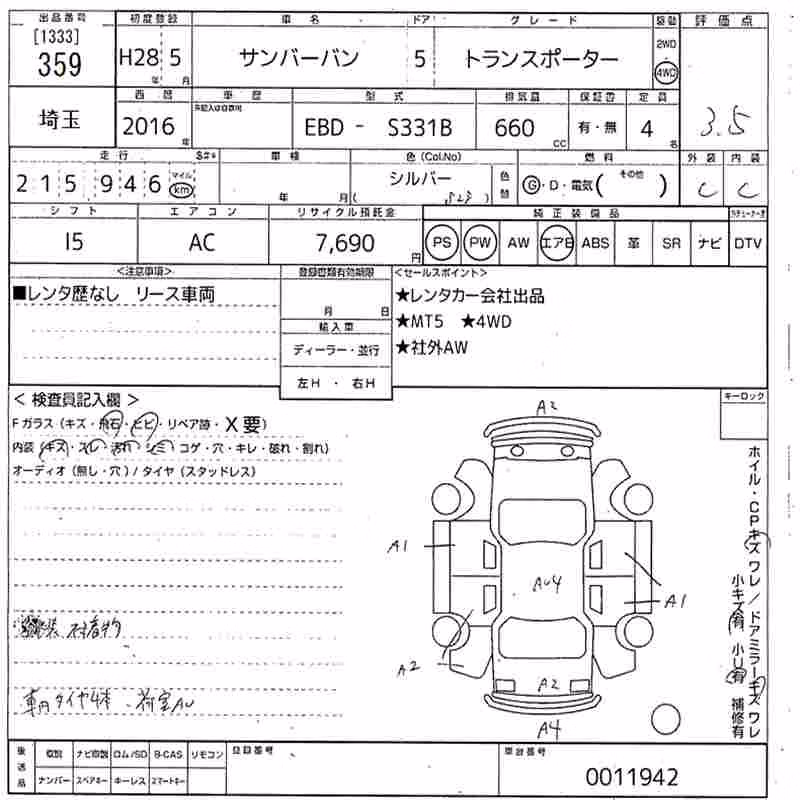 出品番号 初度登録 車名 ドア グレード 駆動 評価点
[1333]
359 H28年 5月 サンバーバン 5 トランスポーター 2WD 4WD
3.5
埼玉 西暦 車歴 型式 排気量 保証書 定員
2016年 EBD - S331B 660cc 有・無 4名
走行 車検 色(Col.No) 燃料 外装 内装
215946 マイル km 年 月 シルバー 色替 G・D・電気( その他 ) C C
シフト エアコン リサイクル預託金 純正装備品
I5 AC 7,690円 PS PW AW エアB ABS 革 SR ナビ DTV
<注意事項> 登録書類有効期限 <セールスポイント>
■レンタ歴なし リース車両 月 日 ★レンタカー会社出品
輸入車 ★MT5 ★4WD
ディーラー・並行 ★社外AW
左H ・ 右H
< 検査員記入欄 > キーロック
Fガラス(キズ・飛石・ヒビ・リペア跡・X要)
内装(キズ・スレ・汚れ・シミ・コゲ・穴・キレ・破れ・割れ)
オーディオ(無し・穴)/タイヤ(スタッドレス)
A2
A1
AU4
A1
A2
A2
A4
ホイル・CPキズ ワレ/ドアミラーキズ ワレ
小キズ有 小U有 補修有
付着物
車内タイヤ4本、荷室AU
後送品 取説 ナビ取説 ロム/SD B-CAS リモコン 登録番号 車台番号
ナンバー スペアキー キーレス スマートキー 0011942